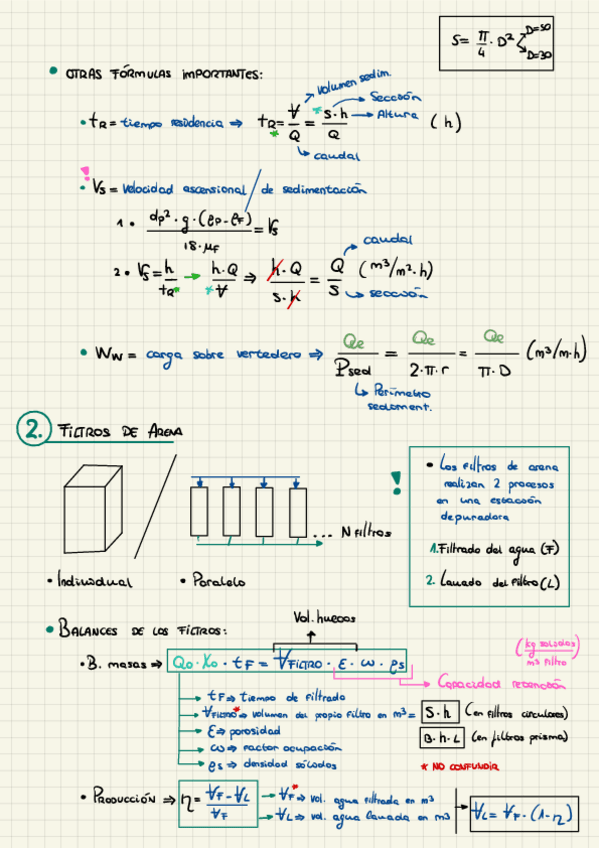 S = π/4 · D² D=50
D=30
• OTRAS FÓRMULAS IMPORTANTES:
volumen sedim.
• tR = tiempo residencia ⇒ tR = V/Q = S·h/Q (h)
Sección
Altura
caudal
!
• Vs = Velocidad ascensional / de sedimentación
1 • dp² · g · (ρp - ρF) / 18 · μF = Vs
caudal
2 • Vs = h/tR → h·Q/V ⇒ h·Q/S·h = Q/S (m³/m²·h)
sección
• Ww = carga sobre vertedero ⇒ Qe/Psed = Qe/2·π·r = Qe/π·D (m³/m·h)
Perímetro
sediment.
2. FILTROS DE ARENA
! • Los filtros de arena
realizan 2 procesos
en una estación
depuradora
1. Filtrado del agua (F)
2. Lavado del filtro (L)
... N filtros
• Individual • Paralelo
Vol. huecos
• BALANCES DE LOS FILTROS:
• B. masas ⇒ Qo · Xo · tF = VFILTRO · ε · ω · ρs
(kg sólidos / m³ filtro)
Capacidad retención
tF ⇒ tiempo de filtrado
VFILTRO* ⇒ volumen del propio filtro en m³ = S·h (en filtros circulares)
B·h·L (en filtros prisma)
ε ⇒ porosidad
ω ⇒ factor ocupación
ρs ⇒ densidad sólidos
* NO CONFUNDIR
• PRODUCCIÓN ⇒ η = VF - VL / VF
VF* ⇒ vol. agua filtrada en m³
VL ⇒ vol. agua lavada en m³
VL = VF · (1-η)